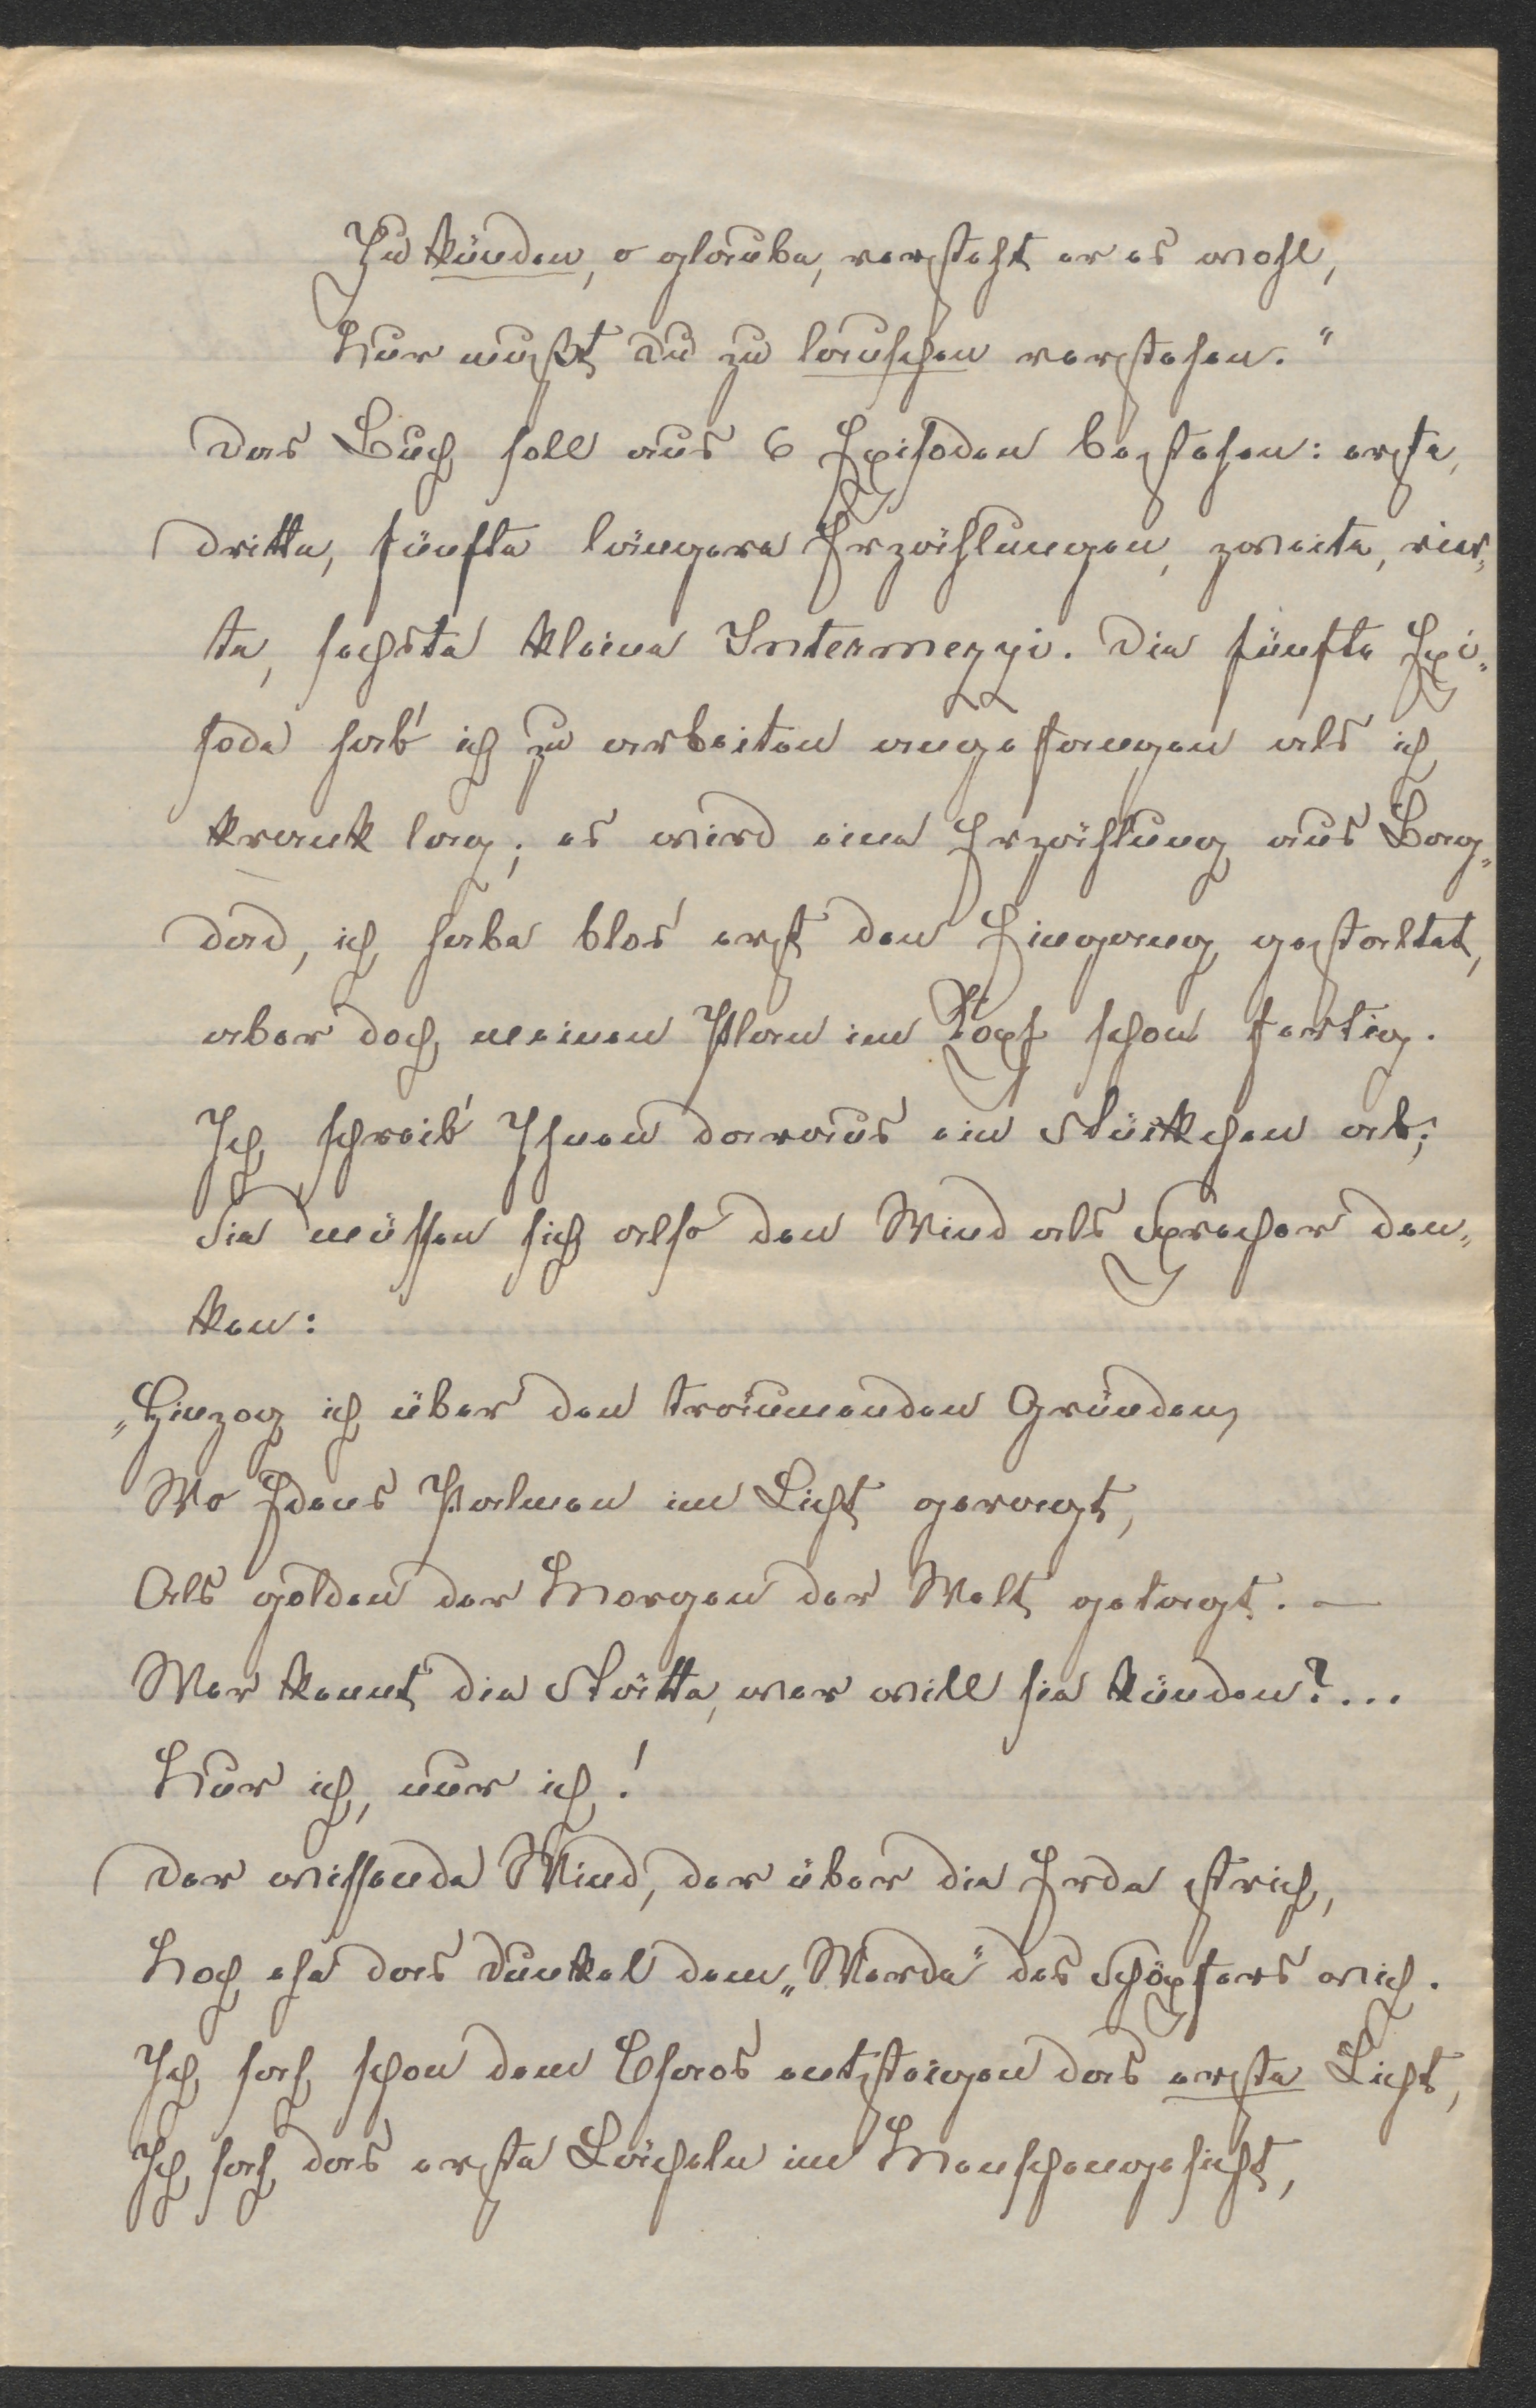 Zu künden, o glaube, versteht er es wohl,
Nur mußt du zu lauschen verstehen."
Das Buch soll aus 6 Episoden bestehen: erste,
dritte, fünfte längere Erzählungen, zweite, vier„
te, sechste kleine Intermezzi. Die fünfte Epi„
sode hab' ich zu arbeiten angefangen als ich
krank lag; es wird eine Erzählung aus Bag„
dad, ich habe blos erst den Eingang gestaltet,
aber doch meinen Plan im Kopf schon fertig.
Ich schreib' Ihnen daraus ein Stückchen ab;
Sie müssen sich also den Wind als Sprecher den„
ken:
„Hinzog ich über den träumenden Gründen,
Wo Edens Palmen im Licht geragt,
Als golden der Morgen der Welt getagt. —
Wer kennt die Stätte, wer will sie künden?...
Nur ich, nur ich!
Der wissende Wind, der über die Erde strich,
Noch ehe das Dunkel dem „Werde" des Schöpfers wich.
Ich sah schon dem Chaos entsteigen das erste Licht,
Ich sah das erste Lächeln im Menschengesicht,